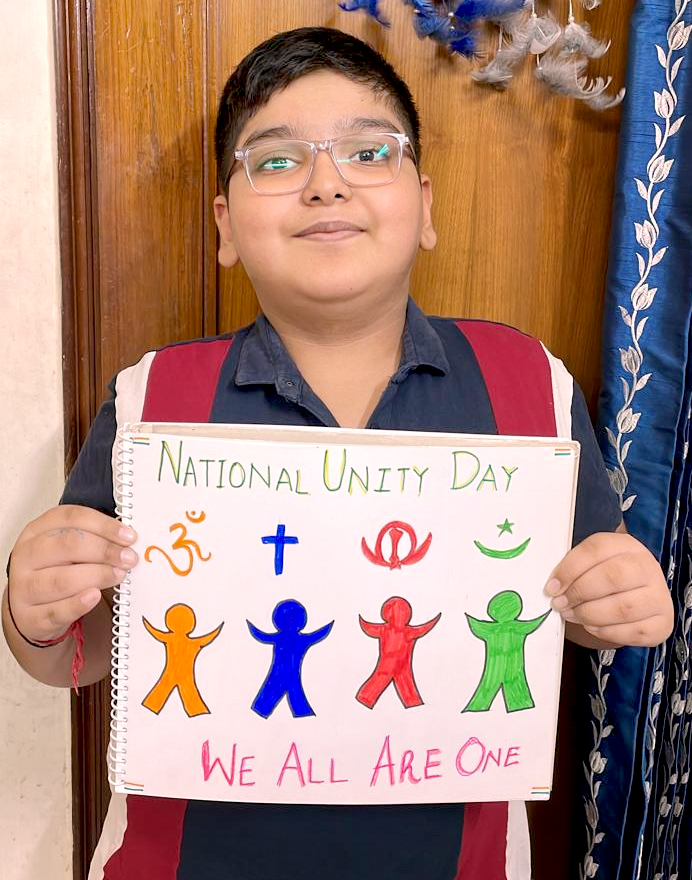 NATIONAL UNITY DAY
ॐ
WE ALL ARE ONE